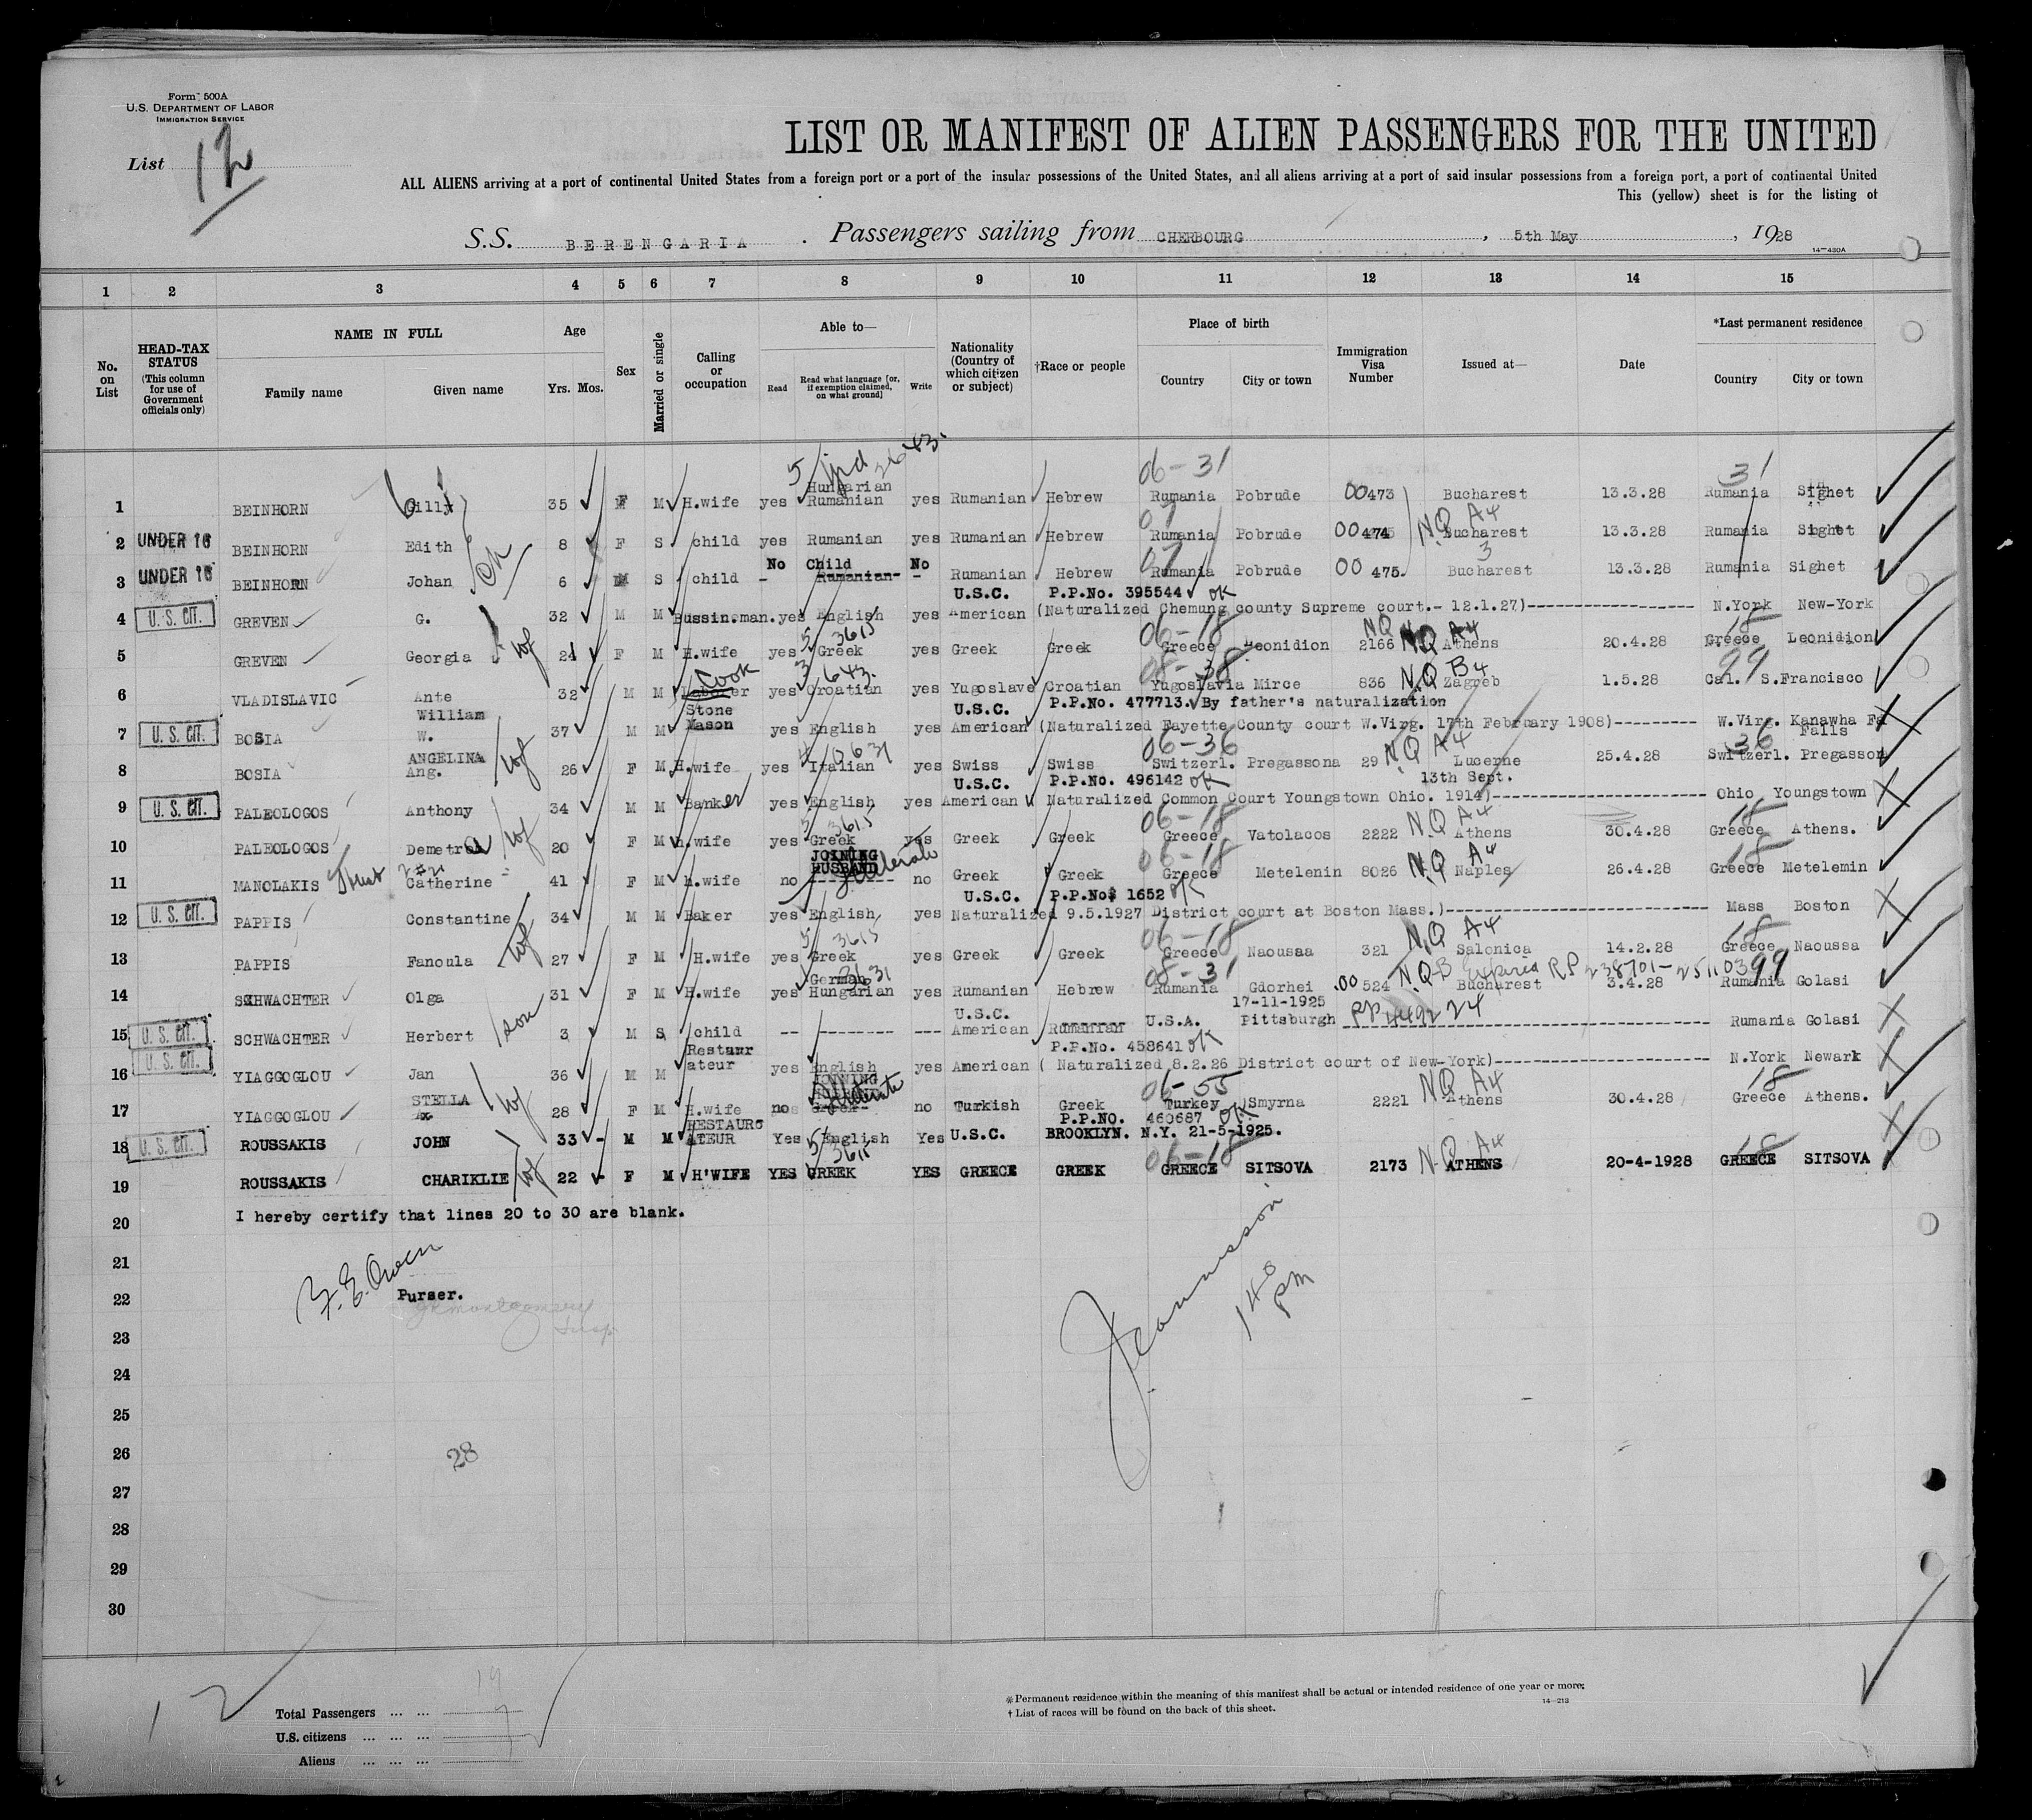 Form 500A
U.S. DEPARTMENT OF LABOR
IMMIGRATION SERVICE
List 12
LIST OR MANIFEST OF ALIEN PASSENGERS FOR THE UNITED
ALL ALIENS arriving at a port of continental United States from a foreign port or a port of the insular possessions of the United States, and all aliens arriving at a port of said insular possessions from a foreign port, a port of continental United
This (yellow) sheet is for the listing of
S.S. BERENGARIA . Passengers sailing from CHERBOURG , 5th May , 1928
14—430A
1 2 3 4 5 6 7 8 9 10 11 12 13 14 15
No. on List
HEAD-TAX STATUS (This column for use of Government officials only)
NAME IN FULL Family name Given name
Age Yrs. Mos.
Sex
Married or single
Calling or occupation
Able to— Read Read what language [or, if exemption claimed, on what ground] Write
Nationality (Country of which citizen or subject)
†Race or people
Place of birth Country City or town
Immigration Visa Number
Issued at—
Date
*Last permanent residence Country City or town
5 06-31 31
Hungarian
1 BEINHORN 35 F M H.wife yes Rumanian yes Rumanian Hebrew Rumania Pobrude 00473 Bucharest 13.3.28 Rumania Sighet
07 NQ A4
2 UNDER 16 BEINHORN Edith 8 F S child yes Rumanian yes Rumanian Hebrew Rumania Pobrude 00474 Bucharest 13.3.28 Rumania Sighet
ok No Child No 07 3
3 UNDER 16 BEINHORN Johan 6 M S child - Rumanian - Rumanian Hebrew Rumania Pobrude 00 475. Bucharest 13.3.28 Rumania Sighet
U.S.C. P.P.No. 395544 ok
4 U.S. CIT. GREVEN G. 32 M M Bussin.man. yes English yes American (Naturalized Chemung county Supreme court.- 12.1.27)------ N.York New-York
wf 5 3615 06-18 NQ A4 18
5 GREVEN Georgia 24 F M H.wife yes Greek yes Greek Greek Greece Leonidion 2166 Athens 20.4.28 Greece Leonidion
Cook 3 643 08-38 NQ B4 99
6 VLADISLAVIC Ante 32 M M Laborer yes Croatian yes Yugoslave Croatian Yugoslavia Mirce 836 Zagreb 1.5.28 Cal. S.Francisco
William Stone U.S.C. P.P.No. 477713. By father's naturalization
7 U.S. CIT. BOSIA W. 37 M M Mason yes English yes American (Naturalized Fayette County court W.Virg. 17th February 1908)------ W.Virg. Kanawha Fa
Falls
ANGELINA wf 06-36 NQ A4 36
8 BOSIA Ang. 26 F M H.wife yes Italian yes Swiss Swiss Switzerl. Pregassona 29 Lucerne 25.4.28 Switzerl. Pregasson
U.S.C. P.P.No. 496142 ok 13th Sept.
9 U.S. CIT. PALEOLOGOS Anthony 34 M M Banker yes English yes American Naturalized Common Court Youngstown Ohio. 1914)------ Ohio Youngstown
wf 3615 06-18 NQ A4 18
10 PALEOLOGOS Demetra 20 F M h.wife yes Greek yes Greek Greek Greece Vatolacos 2222 Athens 30.4.28 Greece Athens.
JOINING HUSBAND Illiterate 06-18 NQ A4 18
11 MANOLAKIS Catherine 41 F M h.wife no -------- no Greek Greek Greece Metelenin 8026 Naples 26.4.28 Greece Metelemin
U.S.C. P.P.No 1652 ok
12 U.S. CIT. PAPPIS Constantine 34 M M Baker yes English yes Naturalized 9.5.1927 District court at Boston Mass.)------ Mass Boston
wf 5 3615 06-18 NQ A4 18
13 PAPPIS Fanoula 27 F M H.wife yes Greek yes Greek Greek Greece Naousaa 321 Salonica 14.2.28 Greece Naoussa
German 08-31 NQB Expired RP 99
14 SCHWACHTER Olga 31 F M H.wife yes Hungarian yes Rumanian Hebrew Rumania Gdorhei .00 524 Bucharest 3.4.28 Rumania Golasi
son U.S.C. 17-11-1925
15 U.S. CIT. SCHWACHTER Herbert 3 M S child -- -------- --- American Rumanian U.S.A. Pittsburgh ------ Rumania Golasi
Restaur P.P.No. 458641 ok
16 U.S. CIT. YIAGGOGLOU Jan 36 M M ateur yes English yes American ( Naturalized 8.2.26 District court of New-York)------ N.York Newark
STELLA wf JOINING Illiterate 06-55 NQ A4 18
17 YIAGGOGLOU 28 F M H.wife no Greek no Turkish Greek Turkey Smyrna 2221 Athens 30.4.28 Greece Athens.
RESTAURO P.P.NO. 460687 OK
18 U.S. CIT. ROUSSAKIS JOHN 33 - M M ATEUR Yes English Yes U.S.C. BROOKLYN. N.Y. 21-5-1925.
wf 5 3615 06-18 NQ A4 18
19 ROUSSAKIS CHARIKLIE 22 - F M H'WIFE YES GREEK YES GREECE GREEK GREECE SITSOVA 2173 ATHENS 20-4-1928 GREECE SITSOVA
20 I hereby certify that lines 20 to 30 are blank.
21
F. E. Owen
22 Purser.
148 pm
23
24
25
26
28
27
28
29
30
12
19
Total Passengers ... ...
7
U.S. citizens ... ... ...
Aliens ... ... ...
*Permanent residence within the meaning of this manifest shall be actual or intended residence of one year or more.
† List of races will be found on the back of this sheet.
14—213